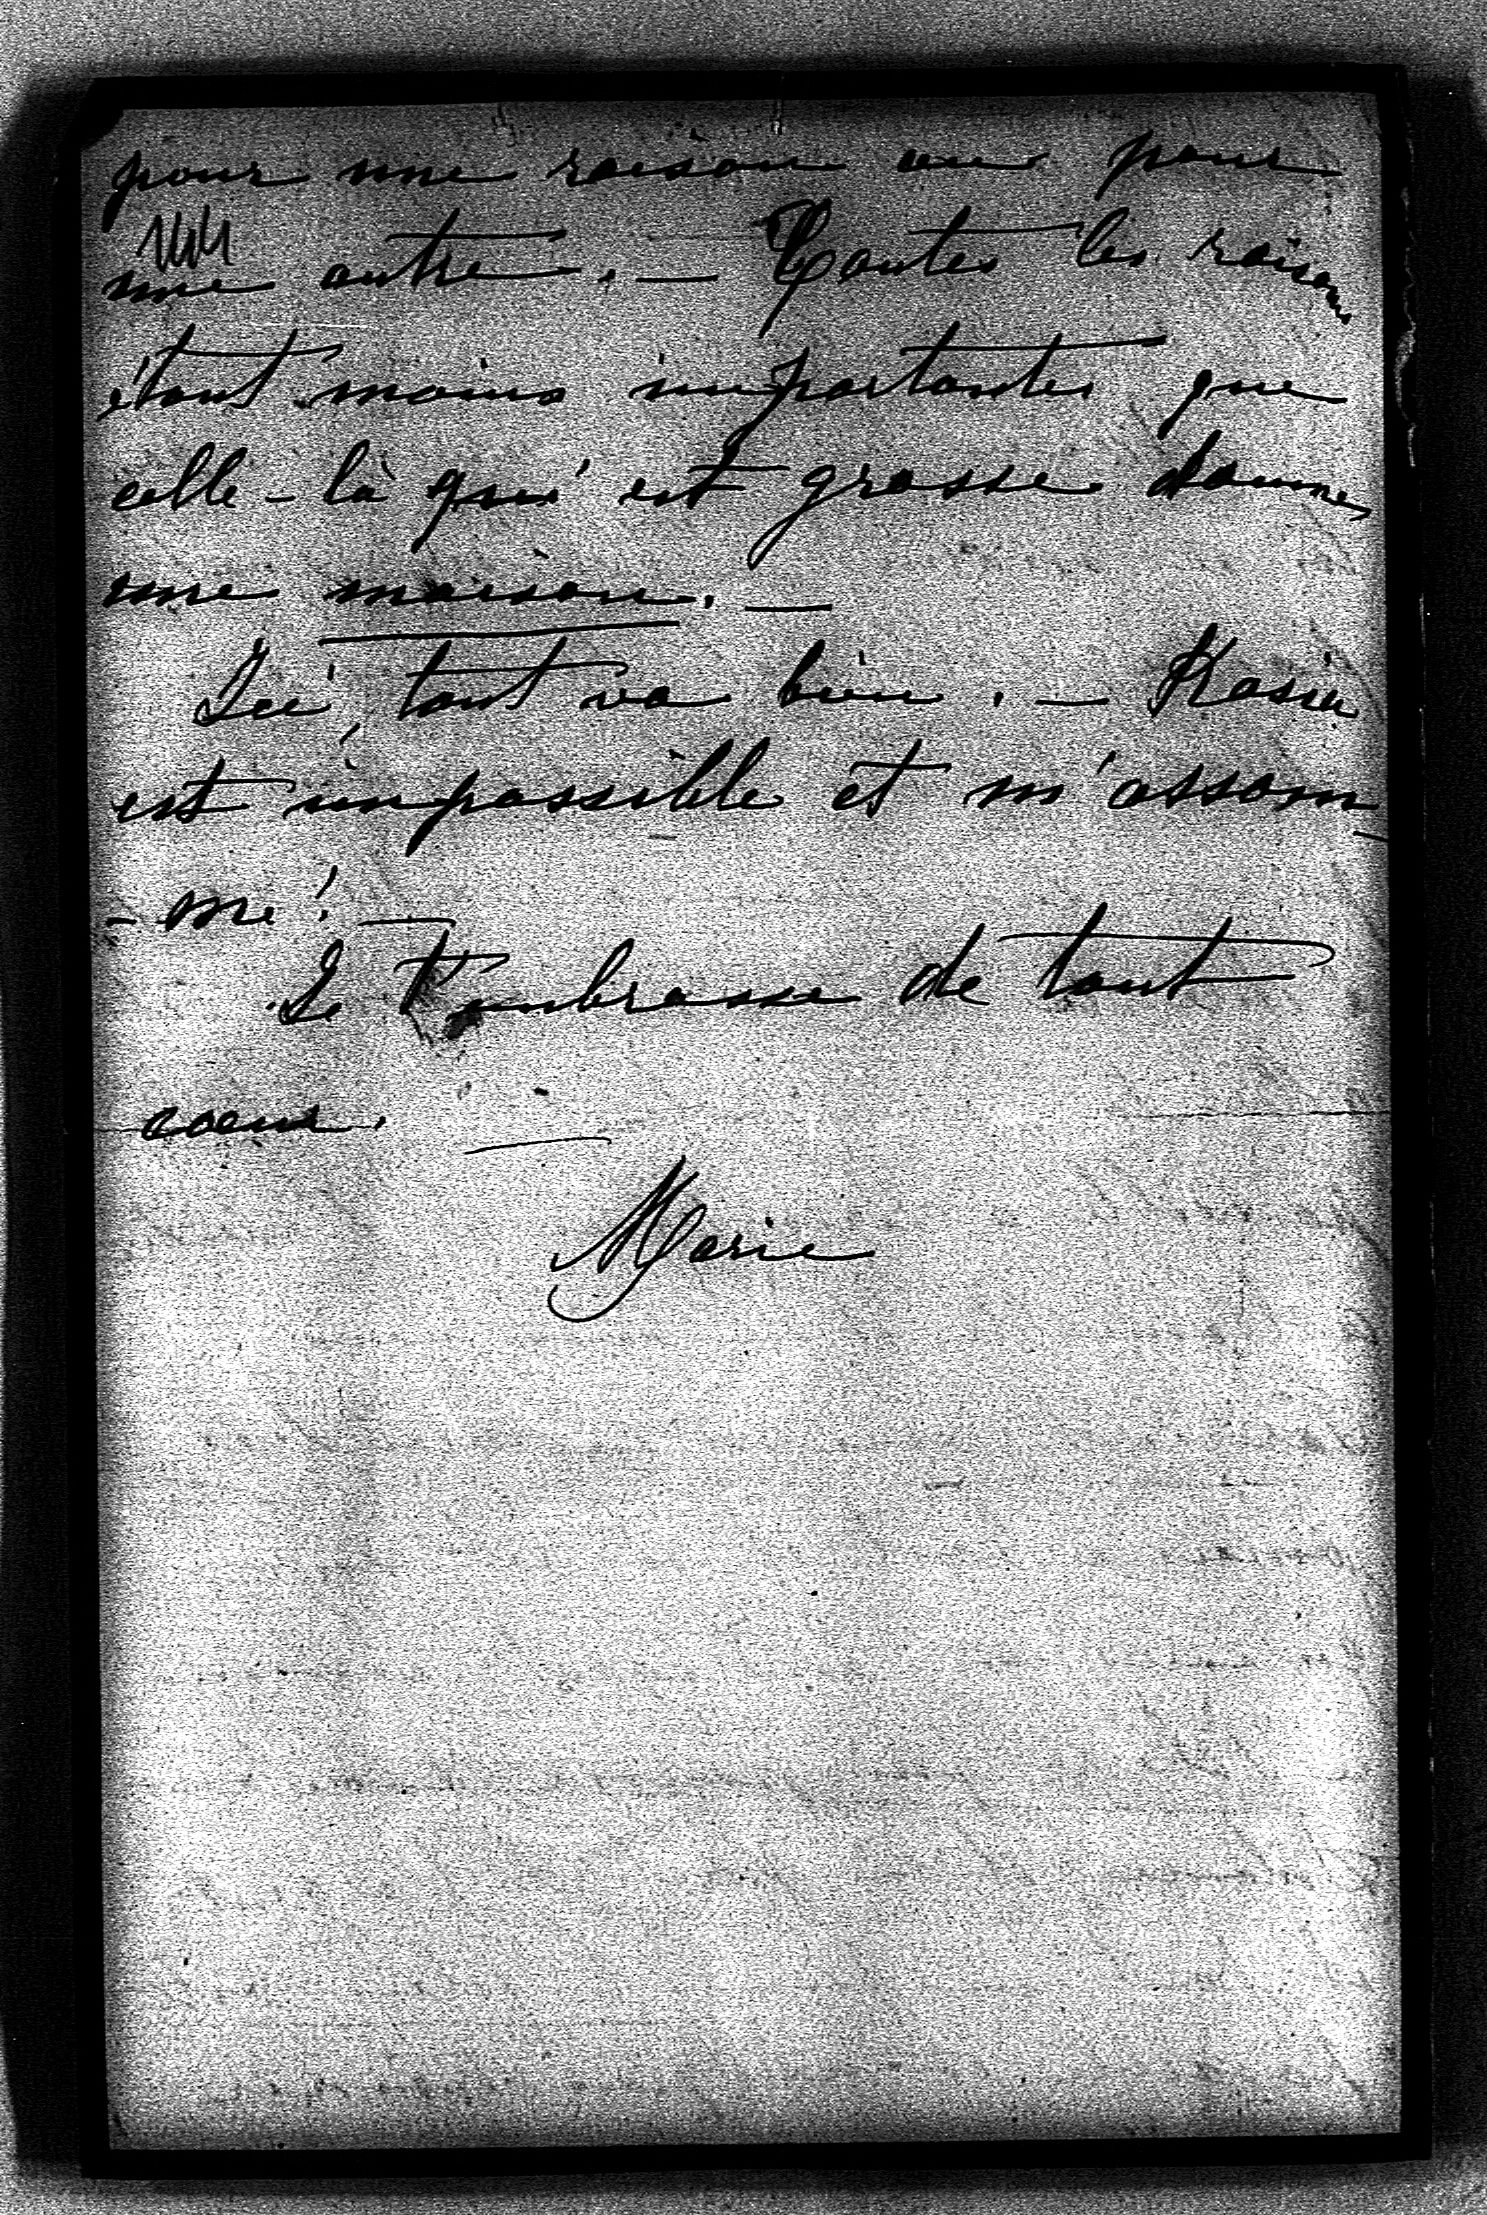 pour une raison ou pour
144
une autre. — Toutes les raisons
étant moins importantes que
celle-là qui est grosse comme
une maison. —
Ici, tout va bien. — Kasia
est impossible et m'assom-
-me! —
Je t'embrasse de tout
coeur. —
Marie